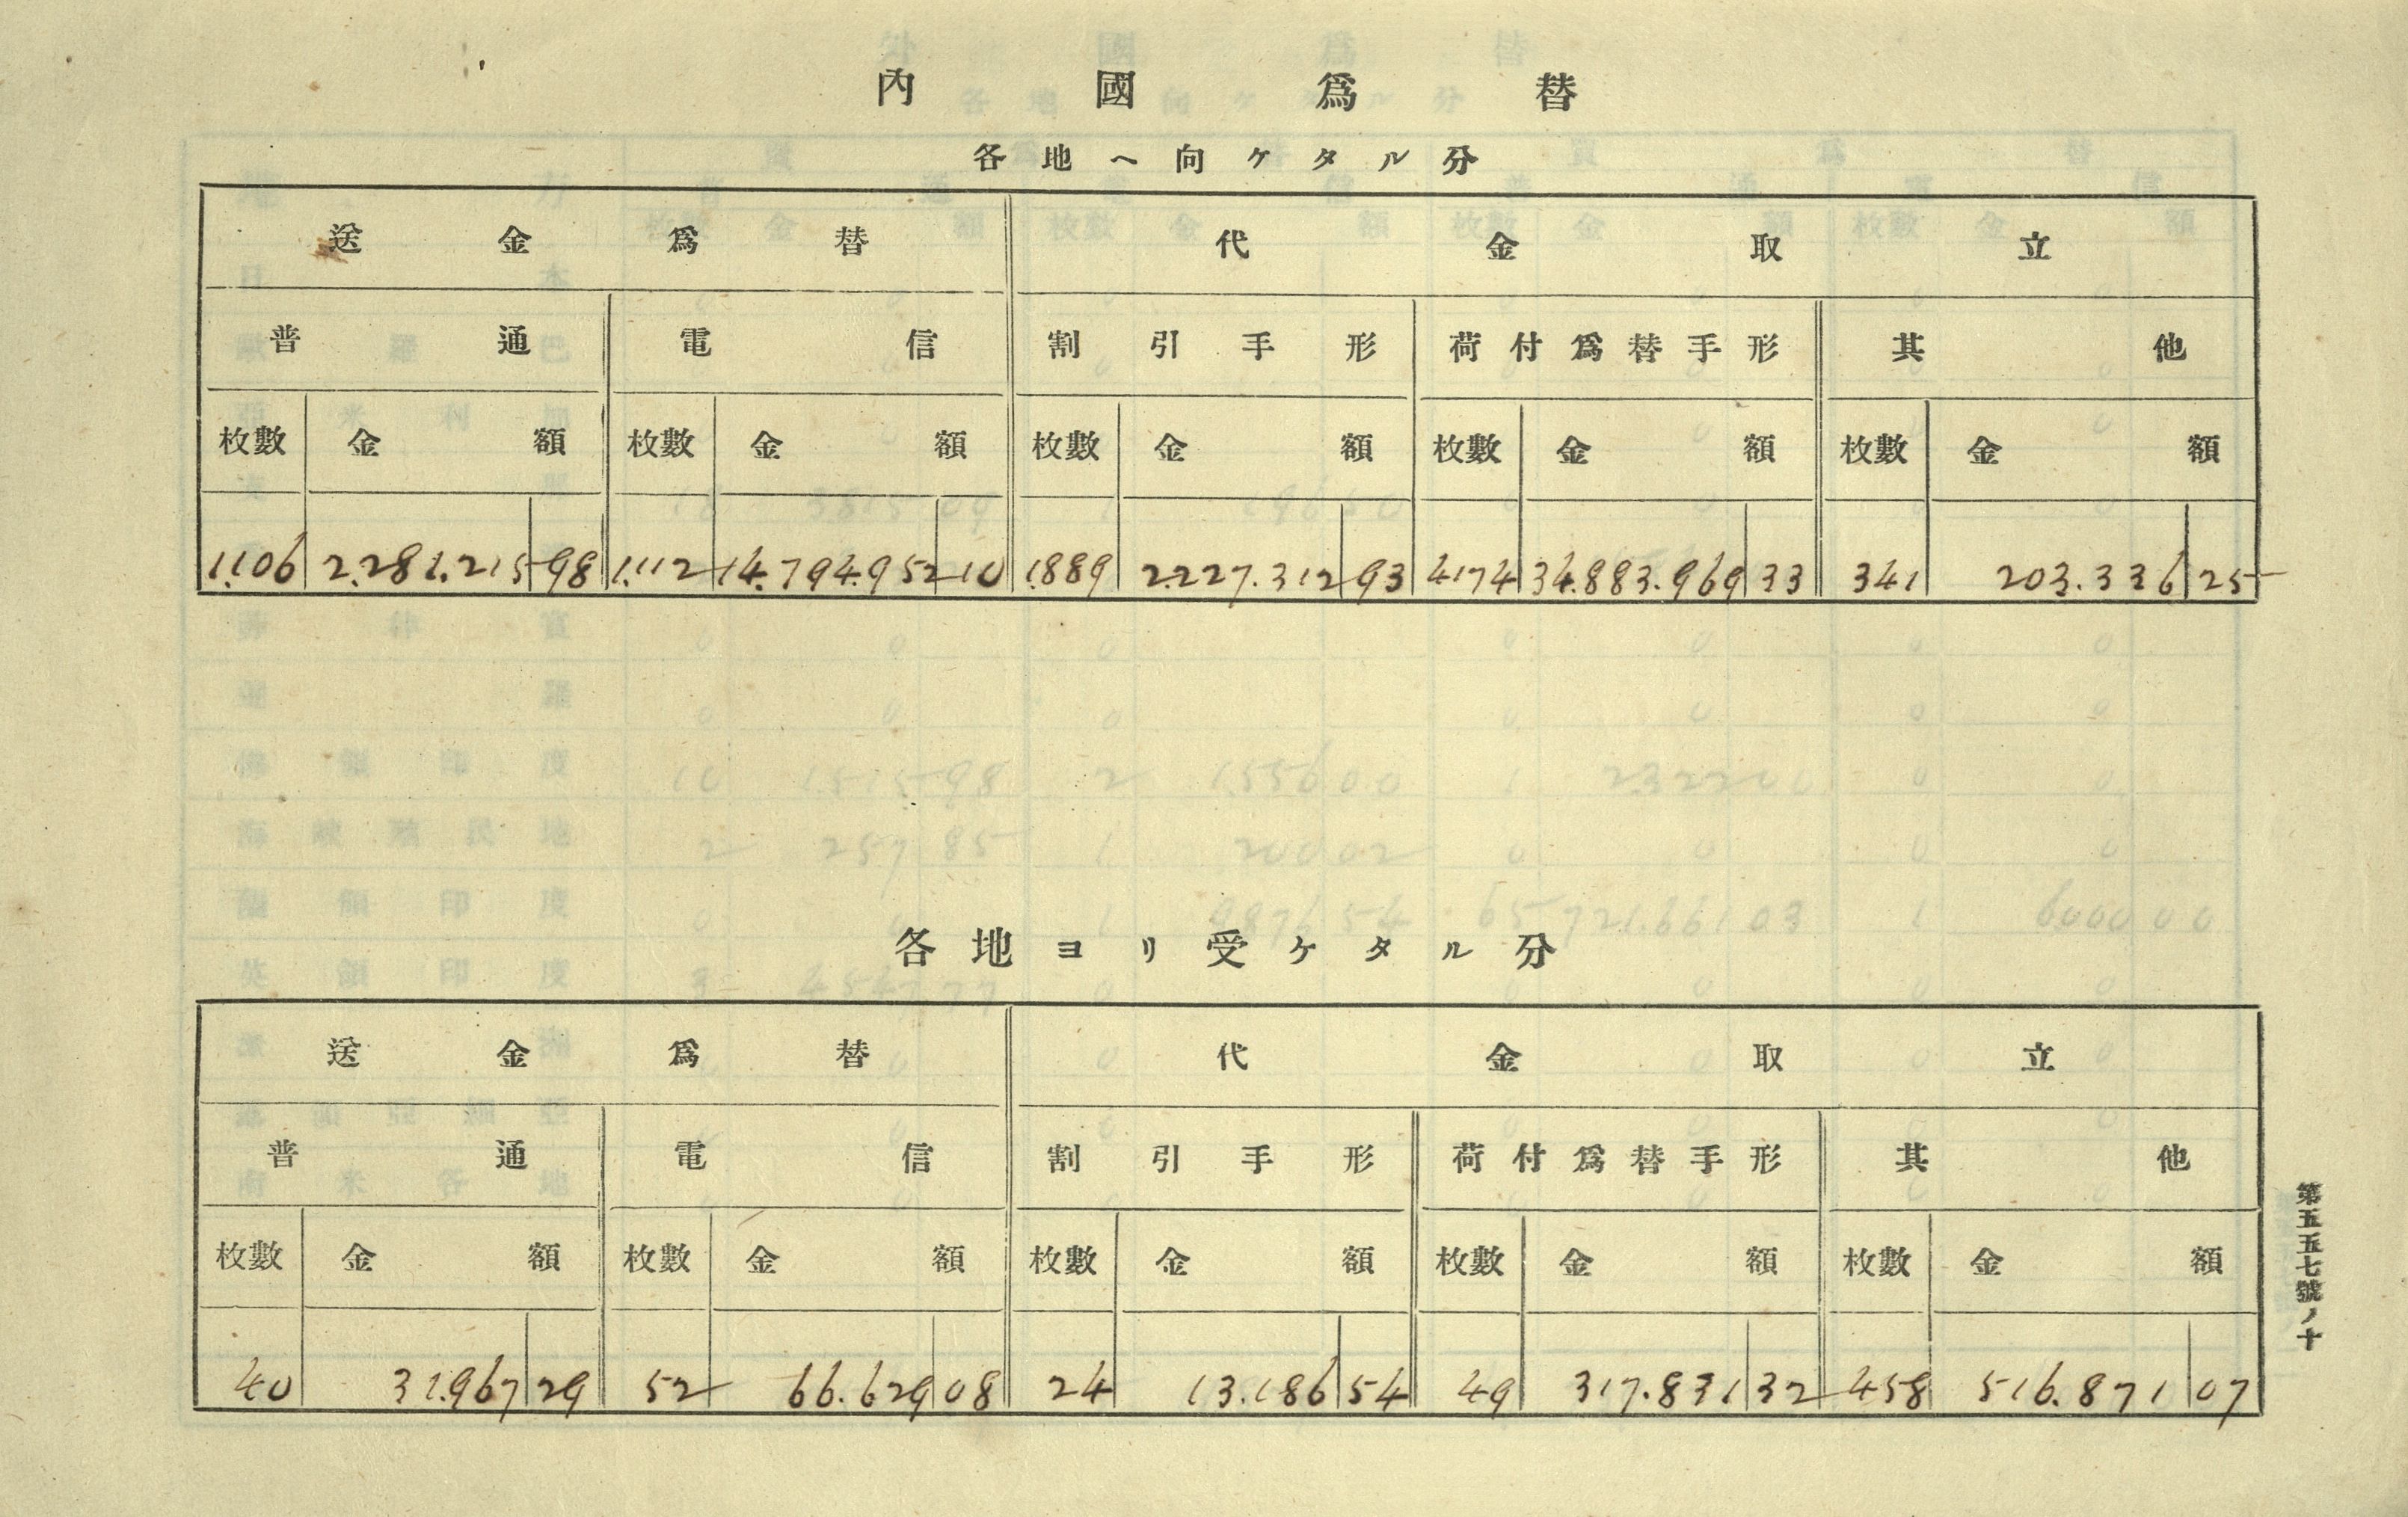 內國爲替
各地ヘ向ケタル分
送金爲替 代金取立
普通 電信 割引手形 荷付爲替手形 其他
枚數 金額 枚數 金額 枚數 金額 枚數 金額 枚數 金額
1.106 2.281.215 98 1.112 14.794.952 10 1.889 2.227.312 93 4.174 34.883.969 33 341 203.336 25
各地ヨリ受ケタル分
送金爲替 代金取立
普通 電信 割引手形 荷付爲替手形 其他
枚數 金額 枚數 金額 枚數 金額 枚數 金額 枚數 金額
40 31.967 29 52 66.629 08 24 13.186 54 49 317.831 32 458 516.871 07
第五五七號ノ十